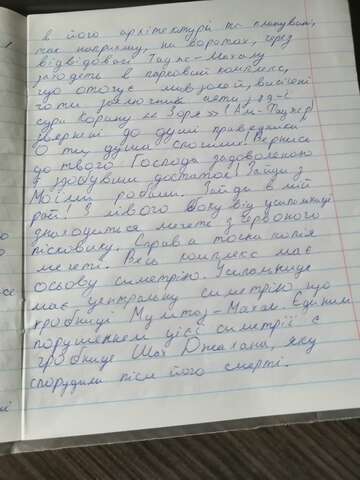 в його архітектурі та плануванні,
так наприклад, на воротах, через
відвідовачі Тадж-Махалу
заходеть в парковий комплекс,
що оточує мавзолей, висічені
чоти заключних аяти, 89-ї
сури Корану «Зоря» (Ал-Фаджр)
звернені до душі праведника
О ти, душа спочила! Вернись
до твого Господа задоволеною
здобувши достаток! Зайди з
Моїми рабами. Зайди в мій
рай! З лівого боку від усипальниці
знаходиться мечеть з червоного
пісковику. Справа точна копія
мечеті. Весь комплекс має
осьову симетрію. Усипальниця
має центральну симетрію, що
гробниці Мумтаз-Махал. Єдиним
порушенням цієї симетрії є
гробниця Шах Джахана, яку
спорудили після його смерті.